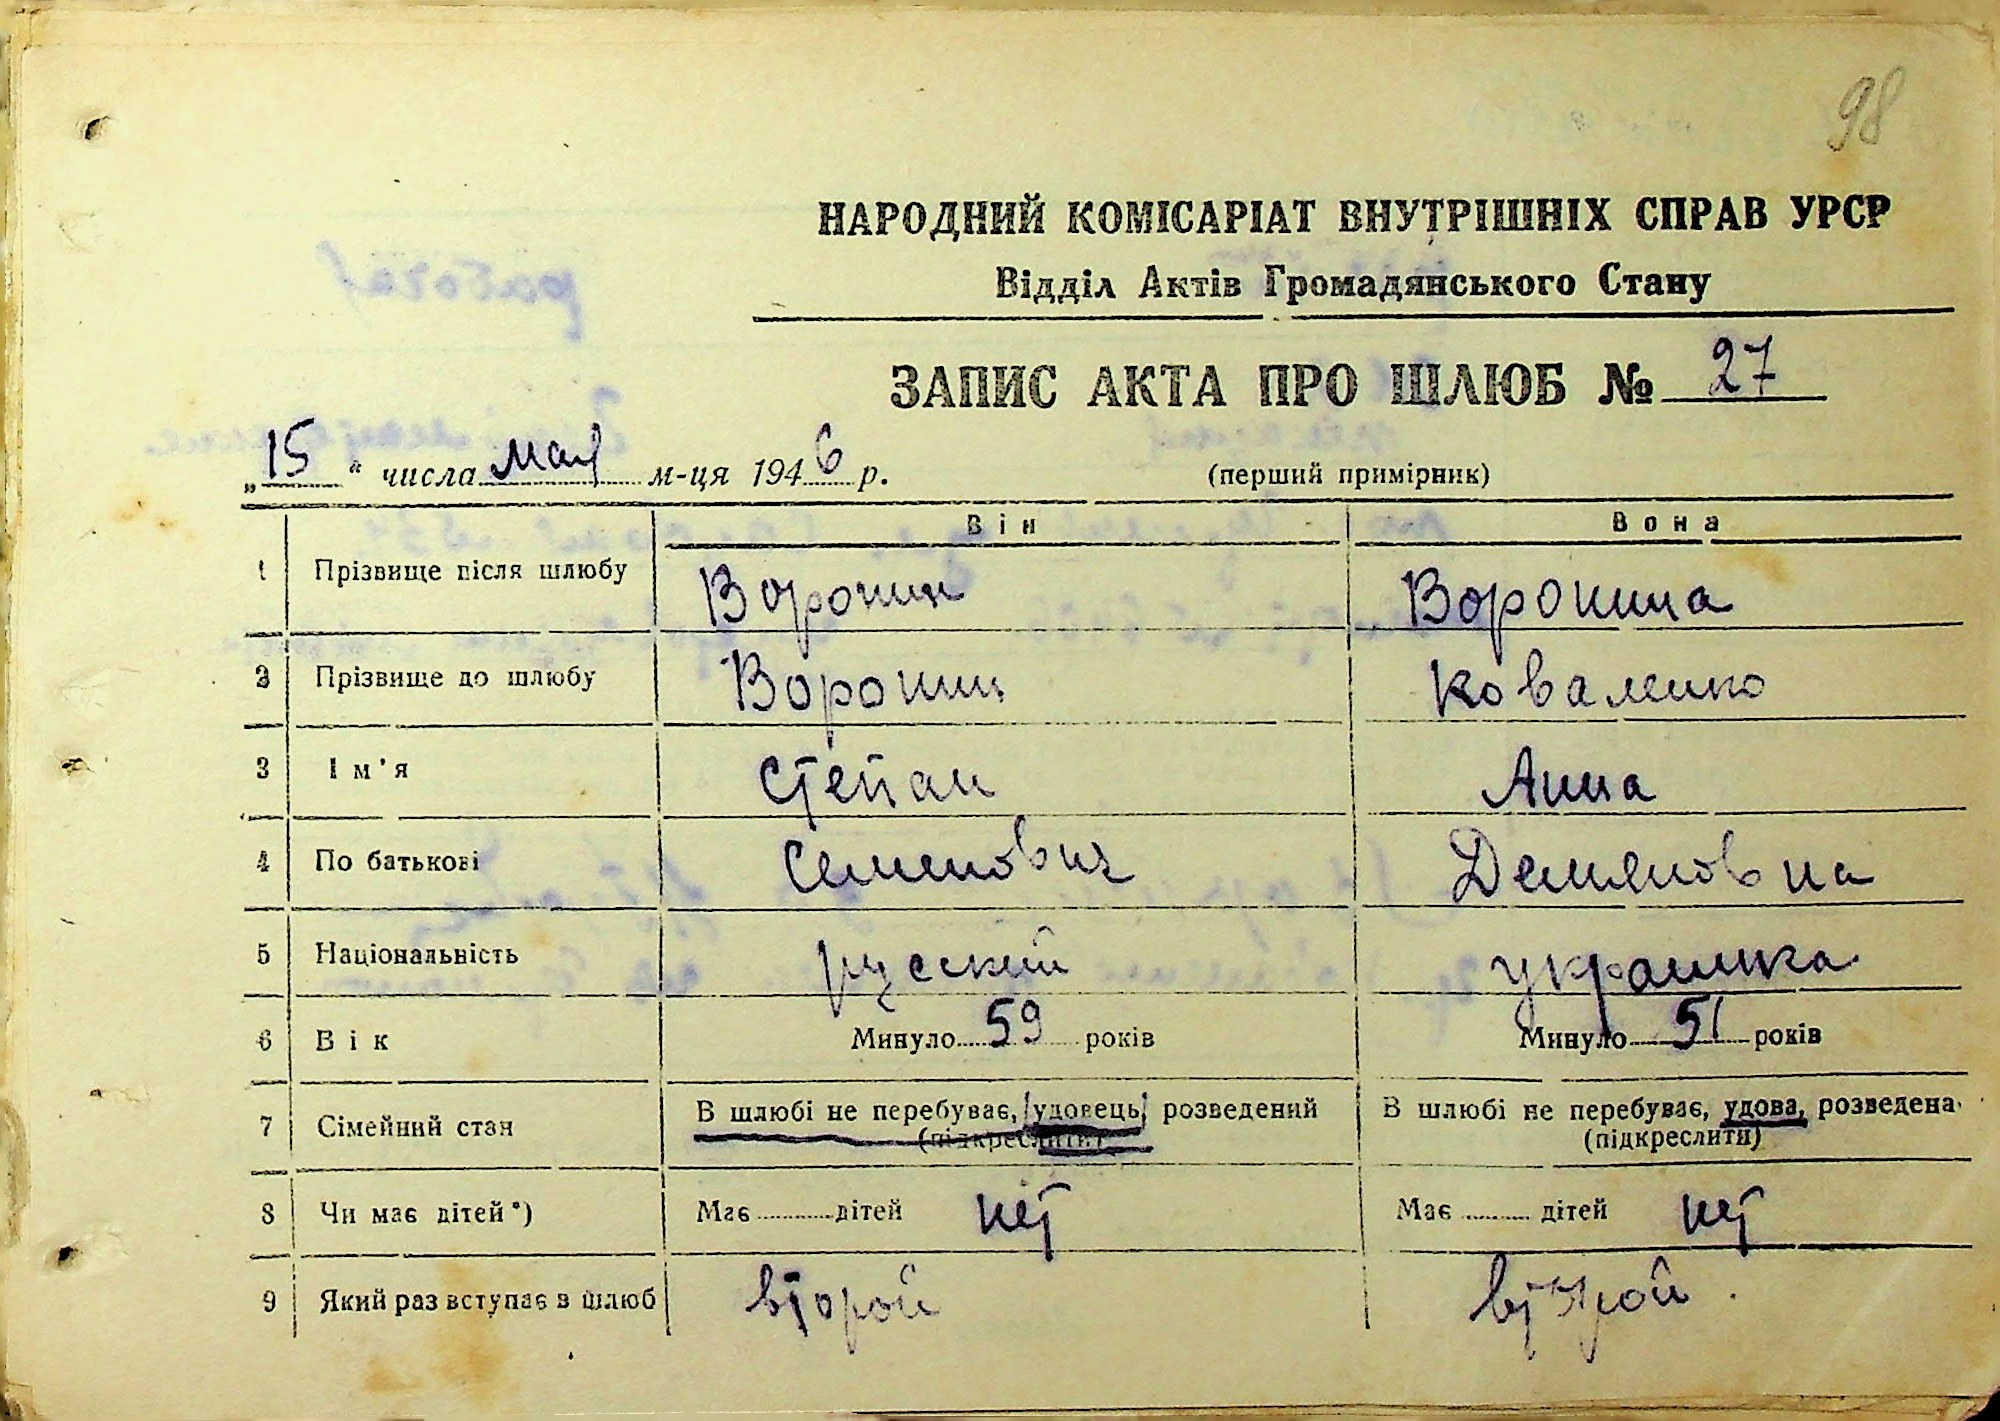 98
НАРОДНИЙ КОМІСАРІАТ ВНУТРІШНІХ СПРАВ УРСР
Відділ Актів Громадянського Стану
ЗАПИС АКТА ПРО ШЛЮБ № 27
„15“ числа мая м-ця 1946 р. (перший примірник)
Він Вона
1 Прізвище після шлюбу Воронин Воронина
2 Прізвище до шлюбу Воронин Коваленко
3 Ім'я Степан Анна
4 По батькові Семенович Демяновна
5 Національність русский украинка
6 Вік Минуло 59 років Минуло 51 років
7 Сімейний стан В шлюбі не перебуває, удовець, розведений В шлюбі не перебуває, удова, розведена
(підкреслити) (підкреслити)
8 Чи має дітей*) Має дітей нет Має дітей нет
9 Який раз вступає в шлюб второй второй